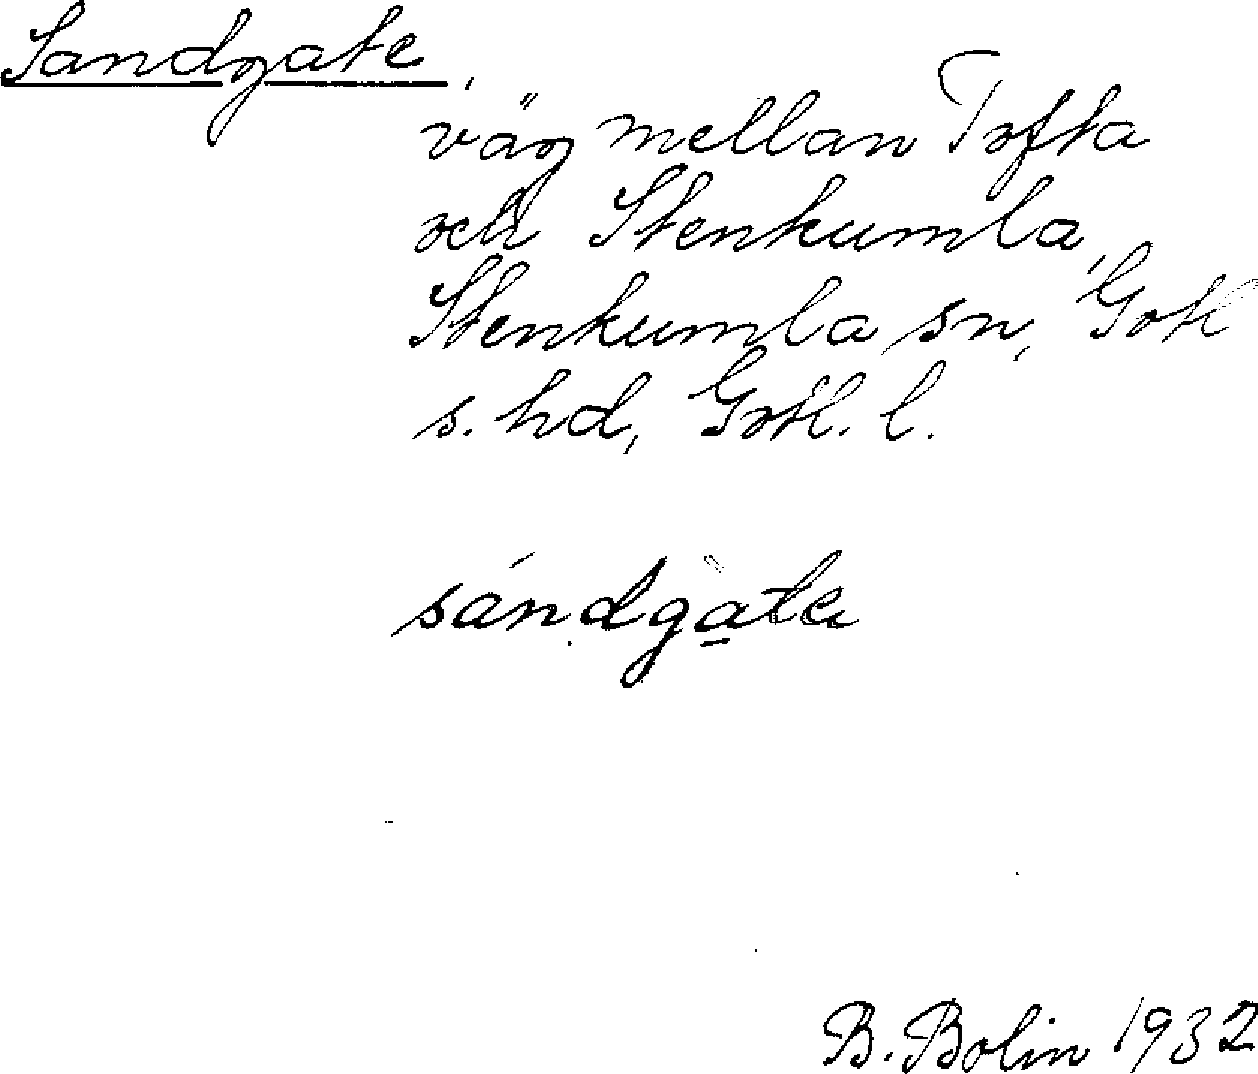 Sandgate,
väg mellan Tofta
och Stenkumla,
Stenkumla sn, Gotl
s. hd, Gotl. l.
sándga̱te
B. Bolin 1932